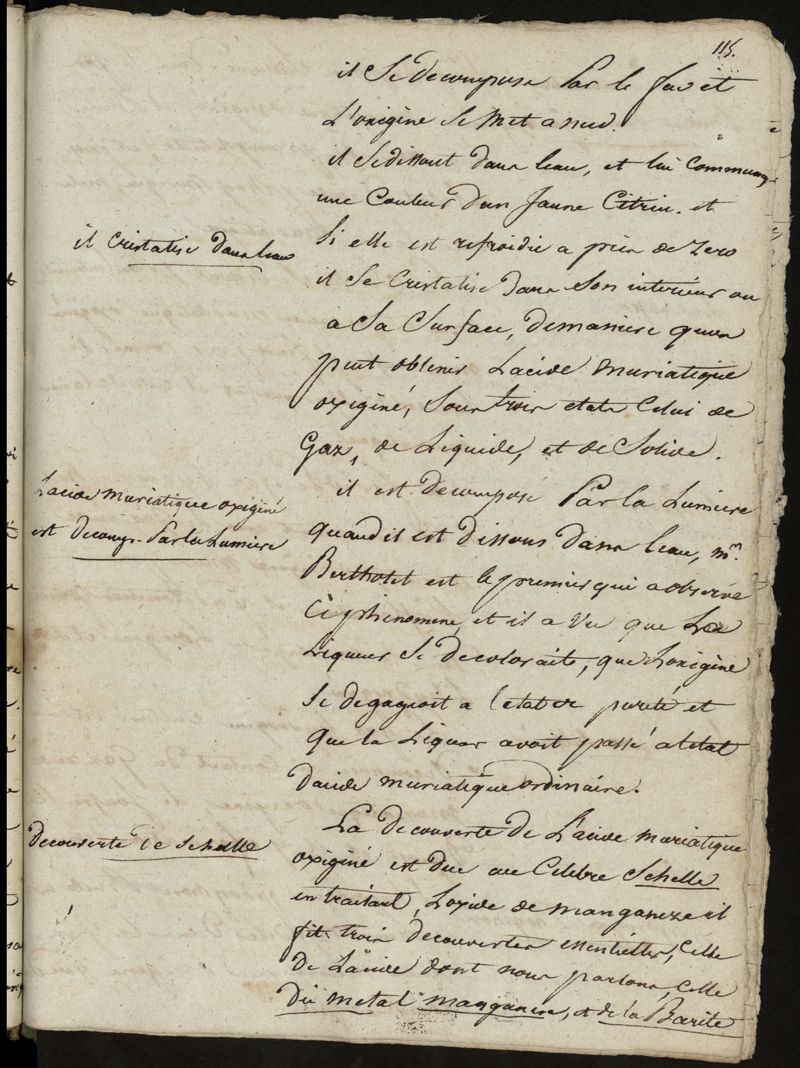 115.
il Se decompose Par le feu et
L'oxigine Se Met a nud.
il Se dissout dans leau, et lui Communiq
une Couleur d'un Jaune Citrin. et
Si elle est refroidie a près de Zero
il cristalise dans leau
il Se Cristalise dans Son interieur ou
a Sa Surface, demaniere quon
peut obtenir Lacide muriatique
oxiginé, Sous trois etats Celui de
Gaz, de Liquide, et de Solide.
Lacide muriatique oxiginé
est decomp. Par la Lumiere
il est Decomposé Par la Lumiere
quand il est Dissous dans leau, mr.
Bertholet est le premier qui a observé
Ce phenomene, et il a Vu que La
Liqueur Se decoloraite, que Loxigine
Se degageoit a letat de pureté et
que la Liquor avoit passé a letat
dacide muriatique ordinaire.
decouverte de Schelle
La decouverte de L'acide muriatique
oxiginé est due au Celebre Schelle
en traitant Loxide de manganeze il
fit trois decouvertes essentielles, Celle
de L'acide dont nous parlons, Celle
du metal manganese, et de la Barite